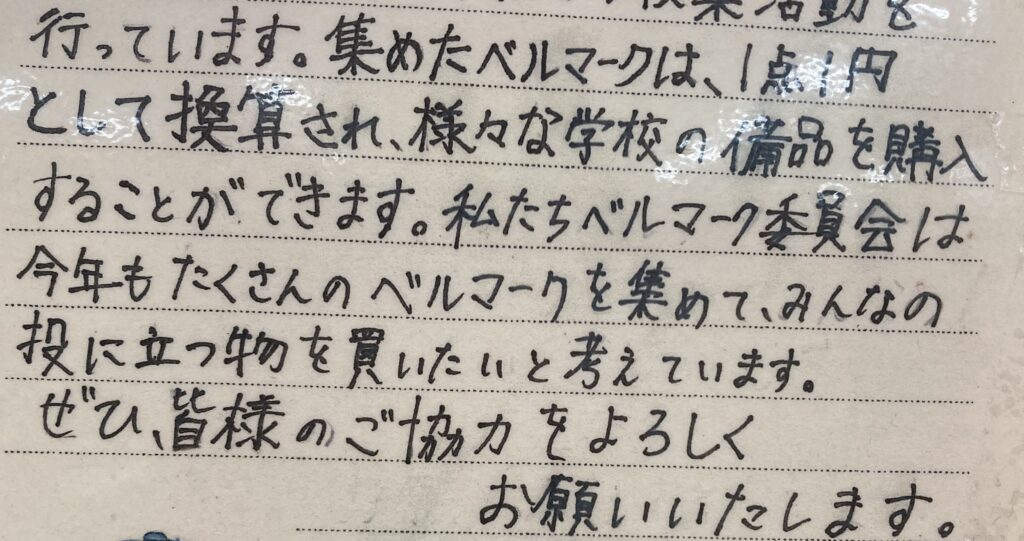 活動を
行っています。集めたベルマークは、1点1円
として換算され、様々な学校の備品を購入
することができます。私たちベルマーク委員会は
今年もたくさんのベルマークを集めて、みんなの
投に立つ物を買いたいと考えています。
ぜひ、皆様のご協力をよろしく
お願いいたします。